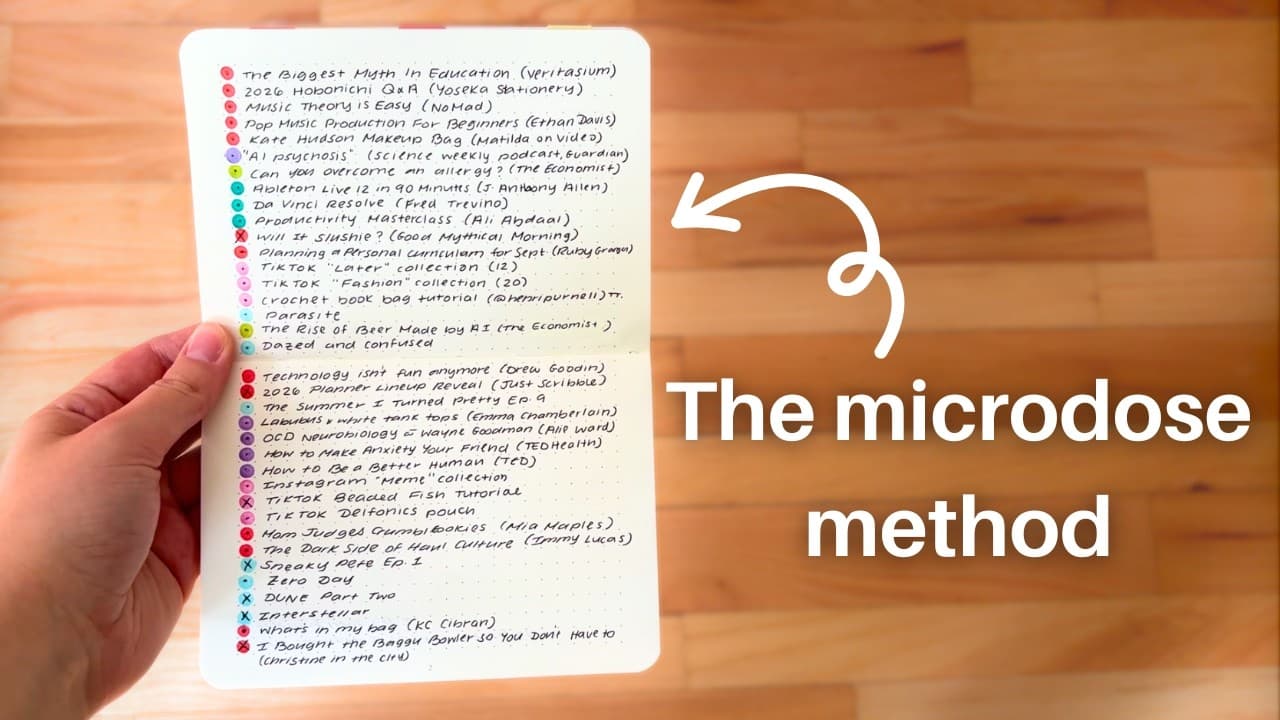 The Biggest Myth In Education (Veritasium)
2026 Hobonichi Q&A (Yoseka Stationery)
Music Theory is Easy (NoMad)
Pop Music Production For Beginners (Ethan Davis)
Kate Hudson Makeup Bag (Matilda on Video)
"AI psychosis" (Science weekly podcast, Guardian)
Can you overcome an allergy? (The Economist)
Ableton Live 12 in 90 Minutes (J. Anthony Allen)
Da Vinci Resolve (Fred Trevino)
Productivity Masterclass (Ali Abdaal)
Will It Slushie? (Good Mythical Morning)
Planning a Personal Curriculum for Sept (Ruby Granger)
TikTok "Later" collection (12)
TikTok "Fashion" collection (20)
Crochet book bag tutorial (@henripurnell)
Parasite
The Rise of Beer Made by AI (The Economist)
Dazed and Confused
Technology isn't fun anymore (Drew Goodin)
2026 Planner Lineup Reveal (Just Scribble)
The Summer I Turned Pretty Ep. 9
Labubus & white tank tops (Emma Chamberlain)
OCD Neurobiology Wayne Goodman (Alie Ward)
How to Make Anxiety Your Friend (TED Health)
How to Be a Better Human (TED)
Instagram "Meme" collection
TikTok Beaded Fish Tutorial
TikTok Delfonics pouch
Mom Judges Crumbl Cookies (Mia Maples)
The Dark Side of Haul Culture (Immy Lucas)
Sneaky Pete Ep. 1
Zero Day
DUNE Part Two
Interstellar
What's in my bag (KC Cibran)
I Bought the Baggu Bowler So You Don't Have to
(Christine in the City)
The microdose
method